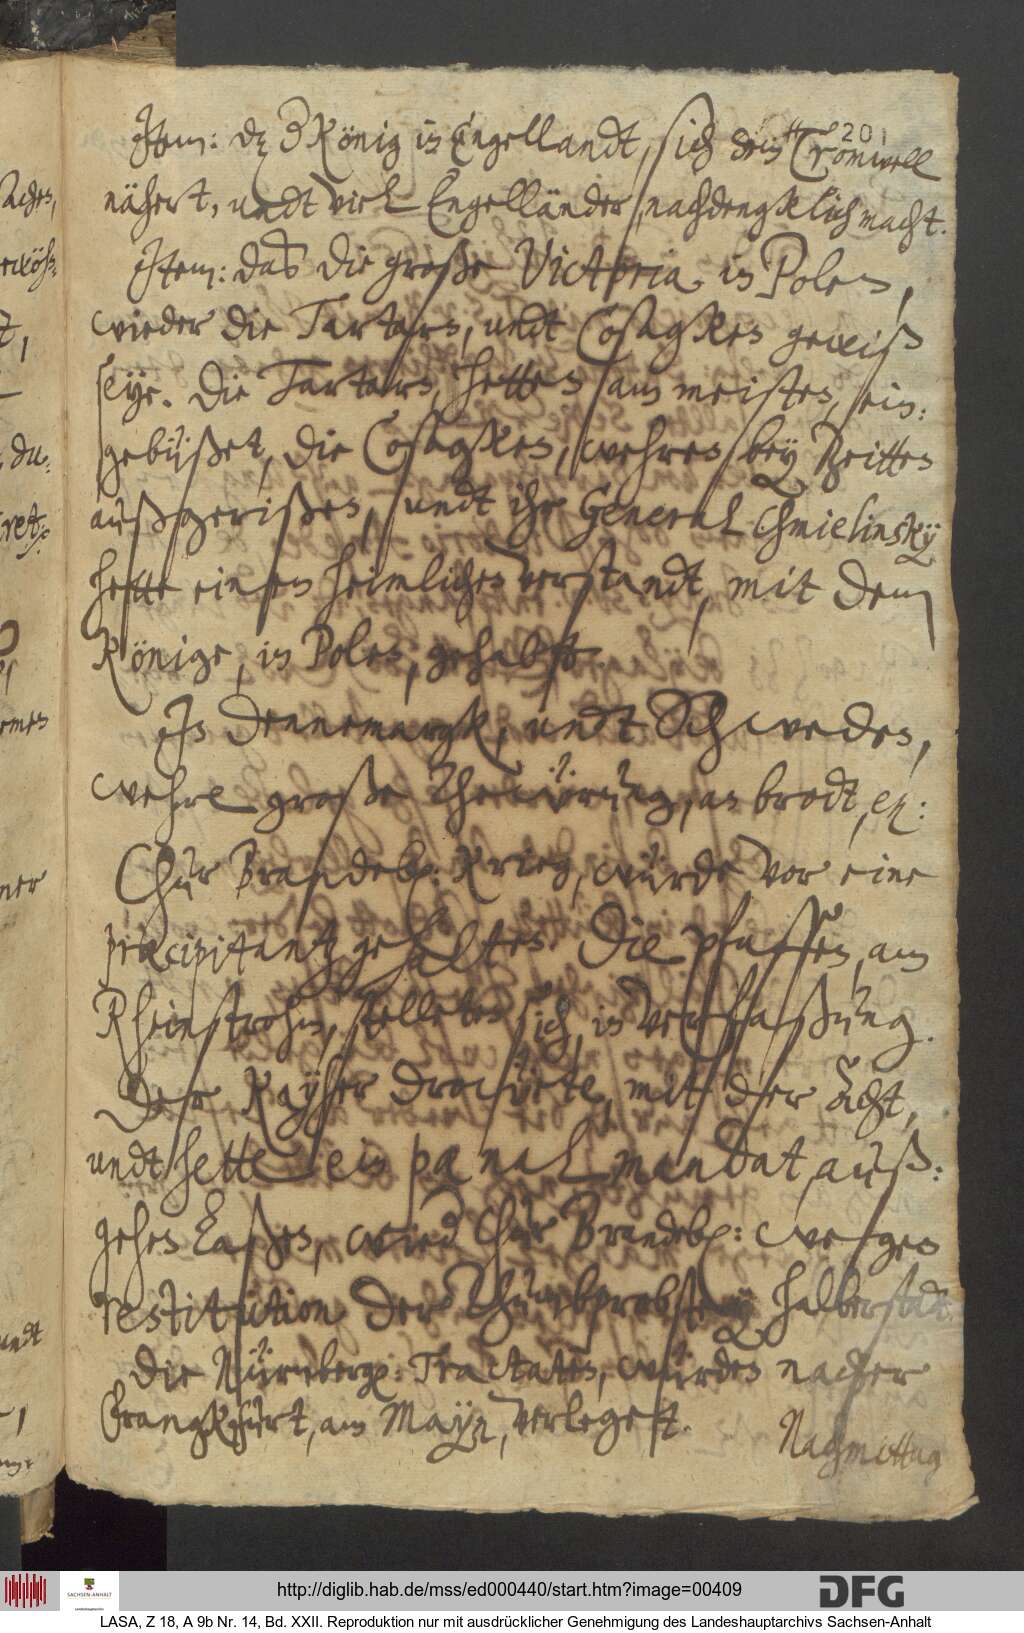 201
Item: dz der König in Engellandt, sich dem Cromwell
nähert, undt viel Engelländer, nachdengklich macht.
Item: das die große Victoria in Polen,
wieder die Tartarn, undt Cosagken gewiß
seye. Die Tartarn, hetten am meisten, ein:
gebüßet, die Cosagken, wehren bey Zeitten
außgerißen, undt ihr General Chmielinsky
hette einen heimlichen verstandt, mit dem
Könige, in Polen, gehabtt.
In Dennemargk, undt Schweden,
wehre große Thewrung, an brodt,
Chur Brandeb: Krieg, würde vor eine
præcipitantz gehalten. Die pfaffen, am
Rheinstrohm, stelleten sich, in verfaßung.
Der Kayser drowete, mit der Acht,
undt hette ein pœnal mandat, auß:
gehen laßen, wied Chur Brandeb: wegen
restitution der Thumbprobstey halberstadt.
Die Nürnberg: Tractaten, würden nacher
Frangkfurt, am Mayn, verlegett.
Nachmittag
http://diglib.hab.de/mss/ed000440/start.htm?image=00409
DFG
SACHSEN-ANHALT
LASA, Z 18, A 9b Nr. 14, Bd. XXII. Reproduktion nur mit ausdrücklicher Genehmigung des Landeshauptarchivs Sachsen-Anhalt